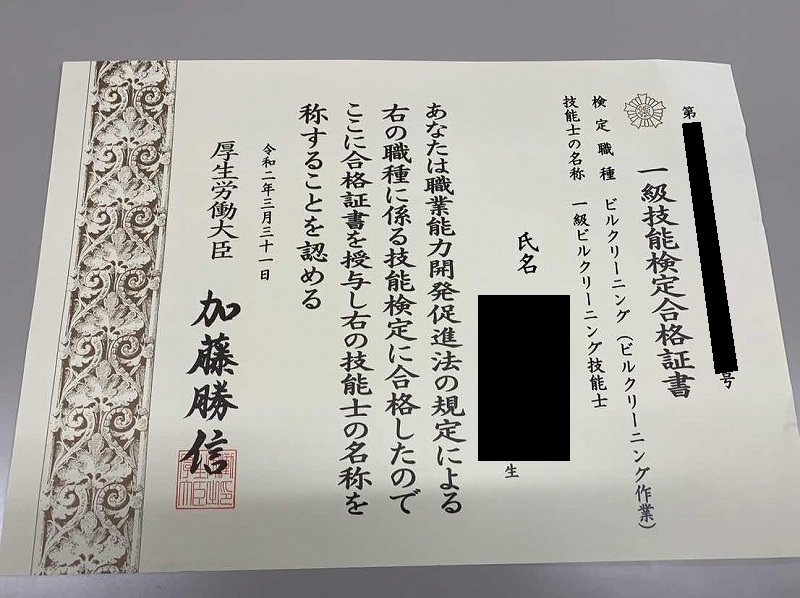 第
号
一級技能検定合格証書
検定職種 ビルクリーニング(ビルクリーニング作業)
技能士の名称 一級ビルクリーニング技能士
氏名
生
あなたは職業能力開発促進法の規定による
右の職種に係る技能検定に合格したので
ここに合格証書を授与し右の技能士の名称を
称することを認める
令和二年三月三十一日
厚生労働大臣 加藤勝信